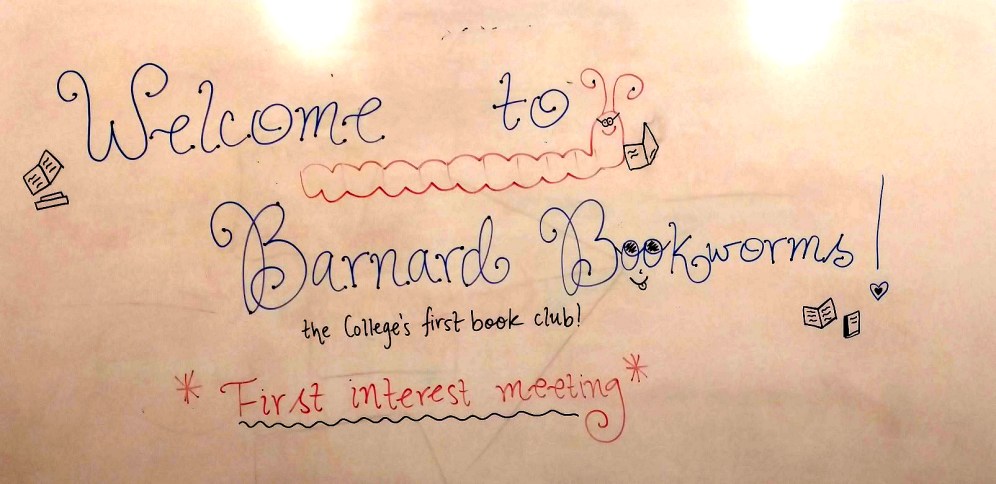 Welcome to
Barnard Bookworms!
the College's first book club!
* First interest meeting *